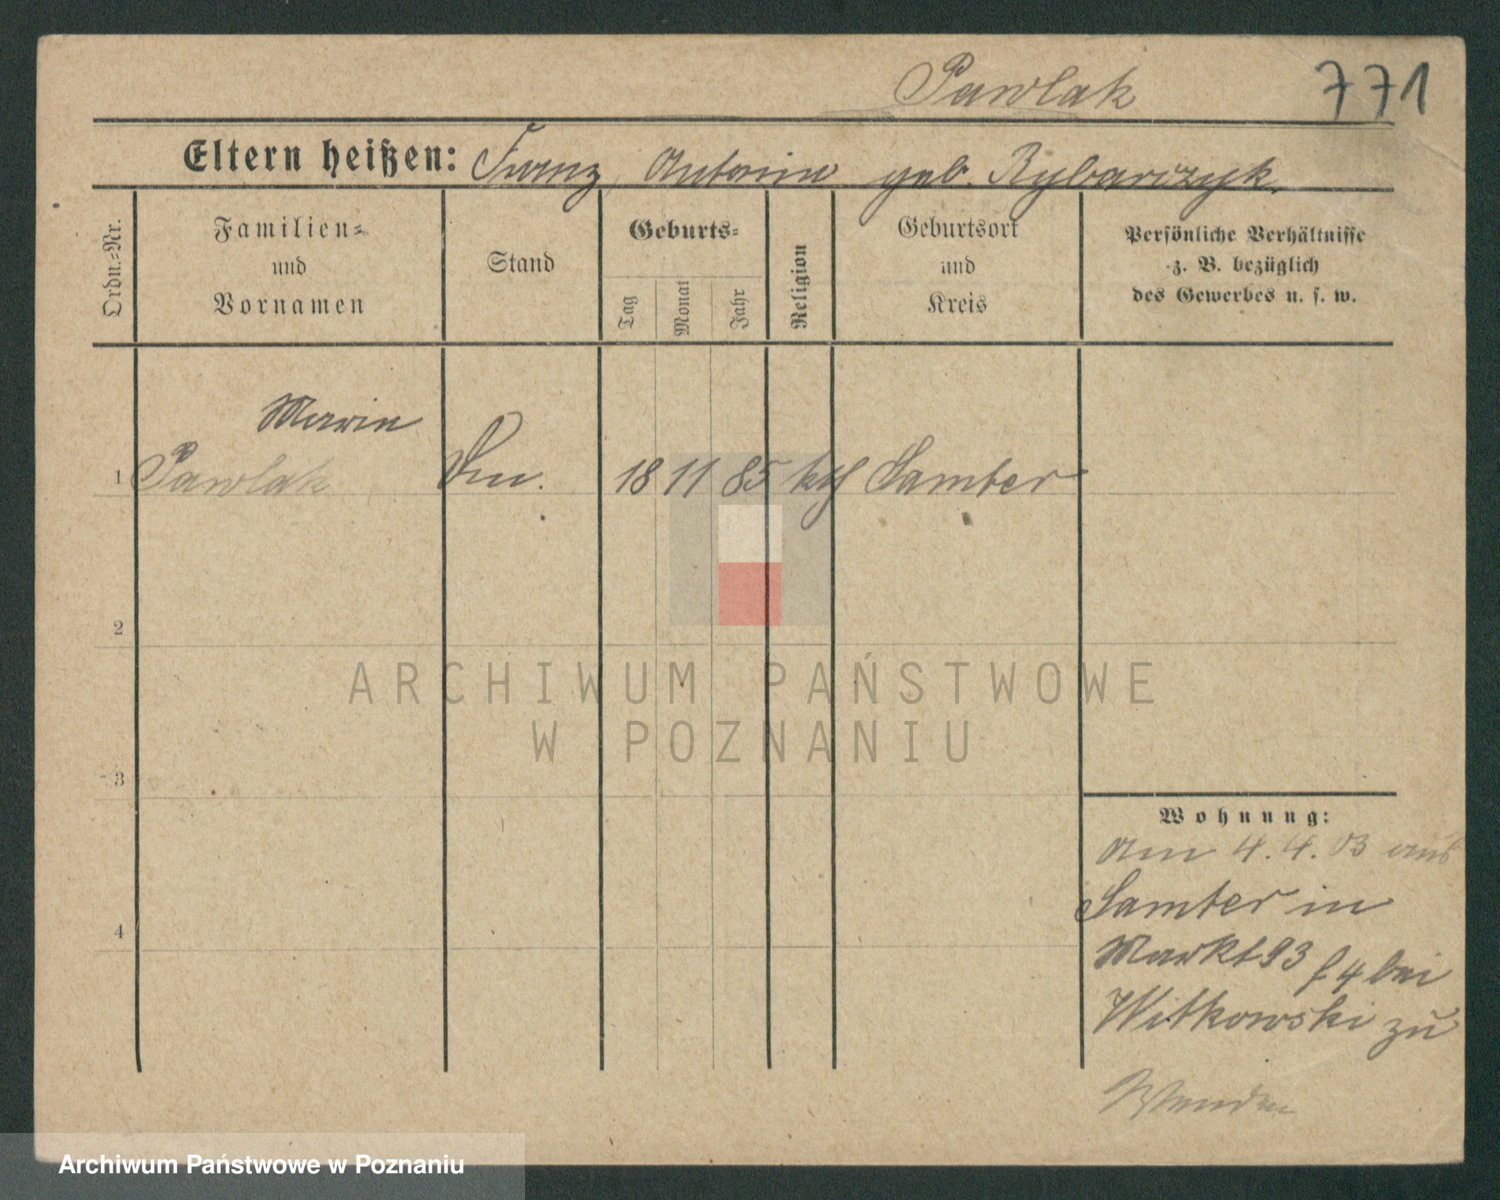 Pawlak 771
Eltern heißen: Franz, Antonin geb. Rybarczyk.
Ordn.-Nr.
Familien-
und
Vornamen
Stand
Geburts-
Tag
Monat
Jahr
Religion
Geburtsort
und
Kreis
Persönliche Verhältnisse
z. B. bezüglich
des Gewerbes u. s. w.
Marie
1 Pawlak 18 11 85 kth Samter
2
3
4
Wohnung:
am 4.4.03 aus
Samter in
Markt 93 f 4 bei
Witkowski zu
ARCHIWUM PAŃSTWOWE
W POZNANIU
Archiwum Państwowe w Poznaniu